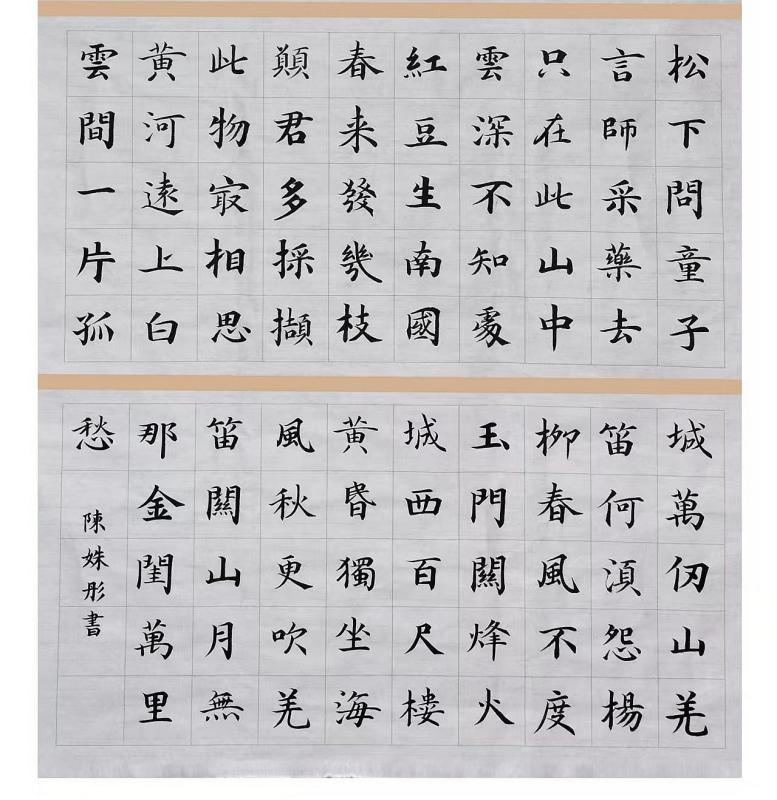 松下問童子
言師采藥去
只在此山中
雲深不知處
紅豆生南國
春来發幾枝
顛君多採擷
此物㝡相思
黄河遠上白
雲間一片孤
城萬仞山羌
笛何湏怨楊
柳春風不度
玉門關烽火
城西百尺樓
黄昬獨坐海
風秋更吹羌
笛關山月無
那金閨萬里
愁
陳姝彤書